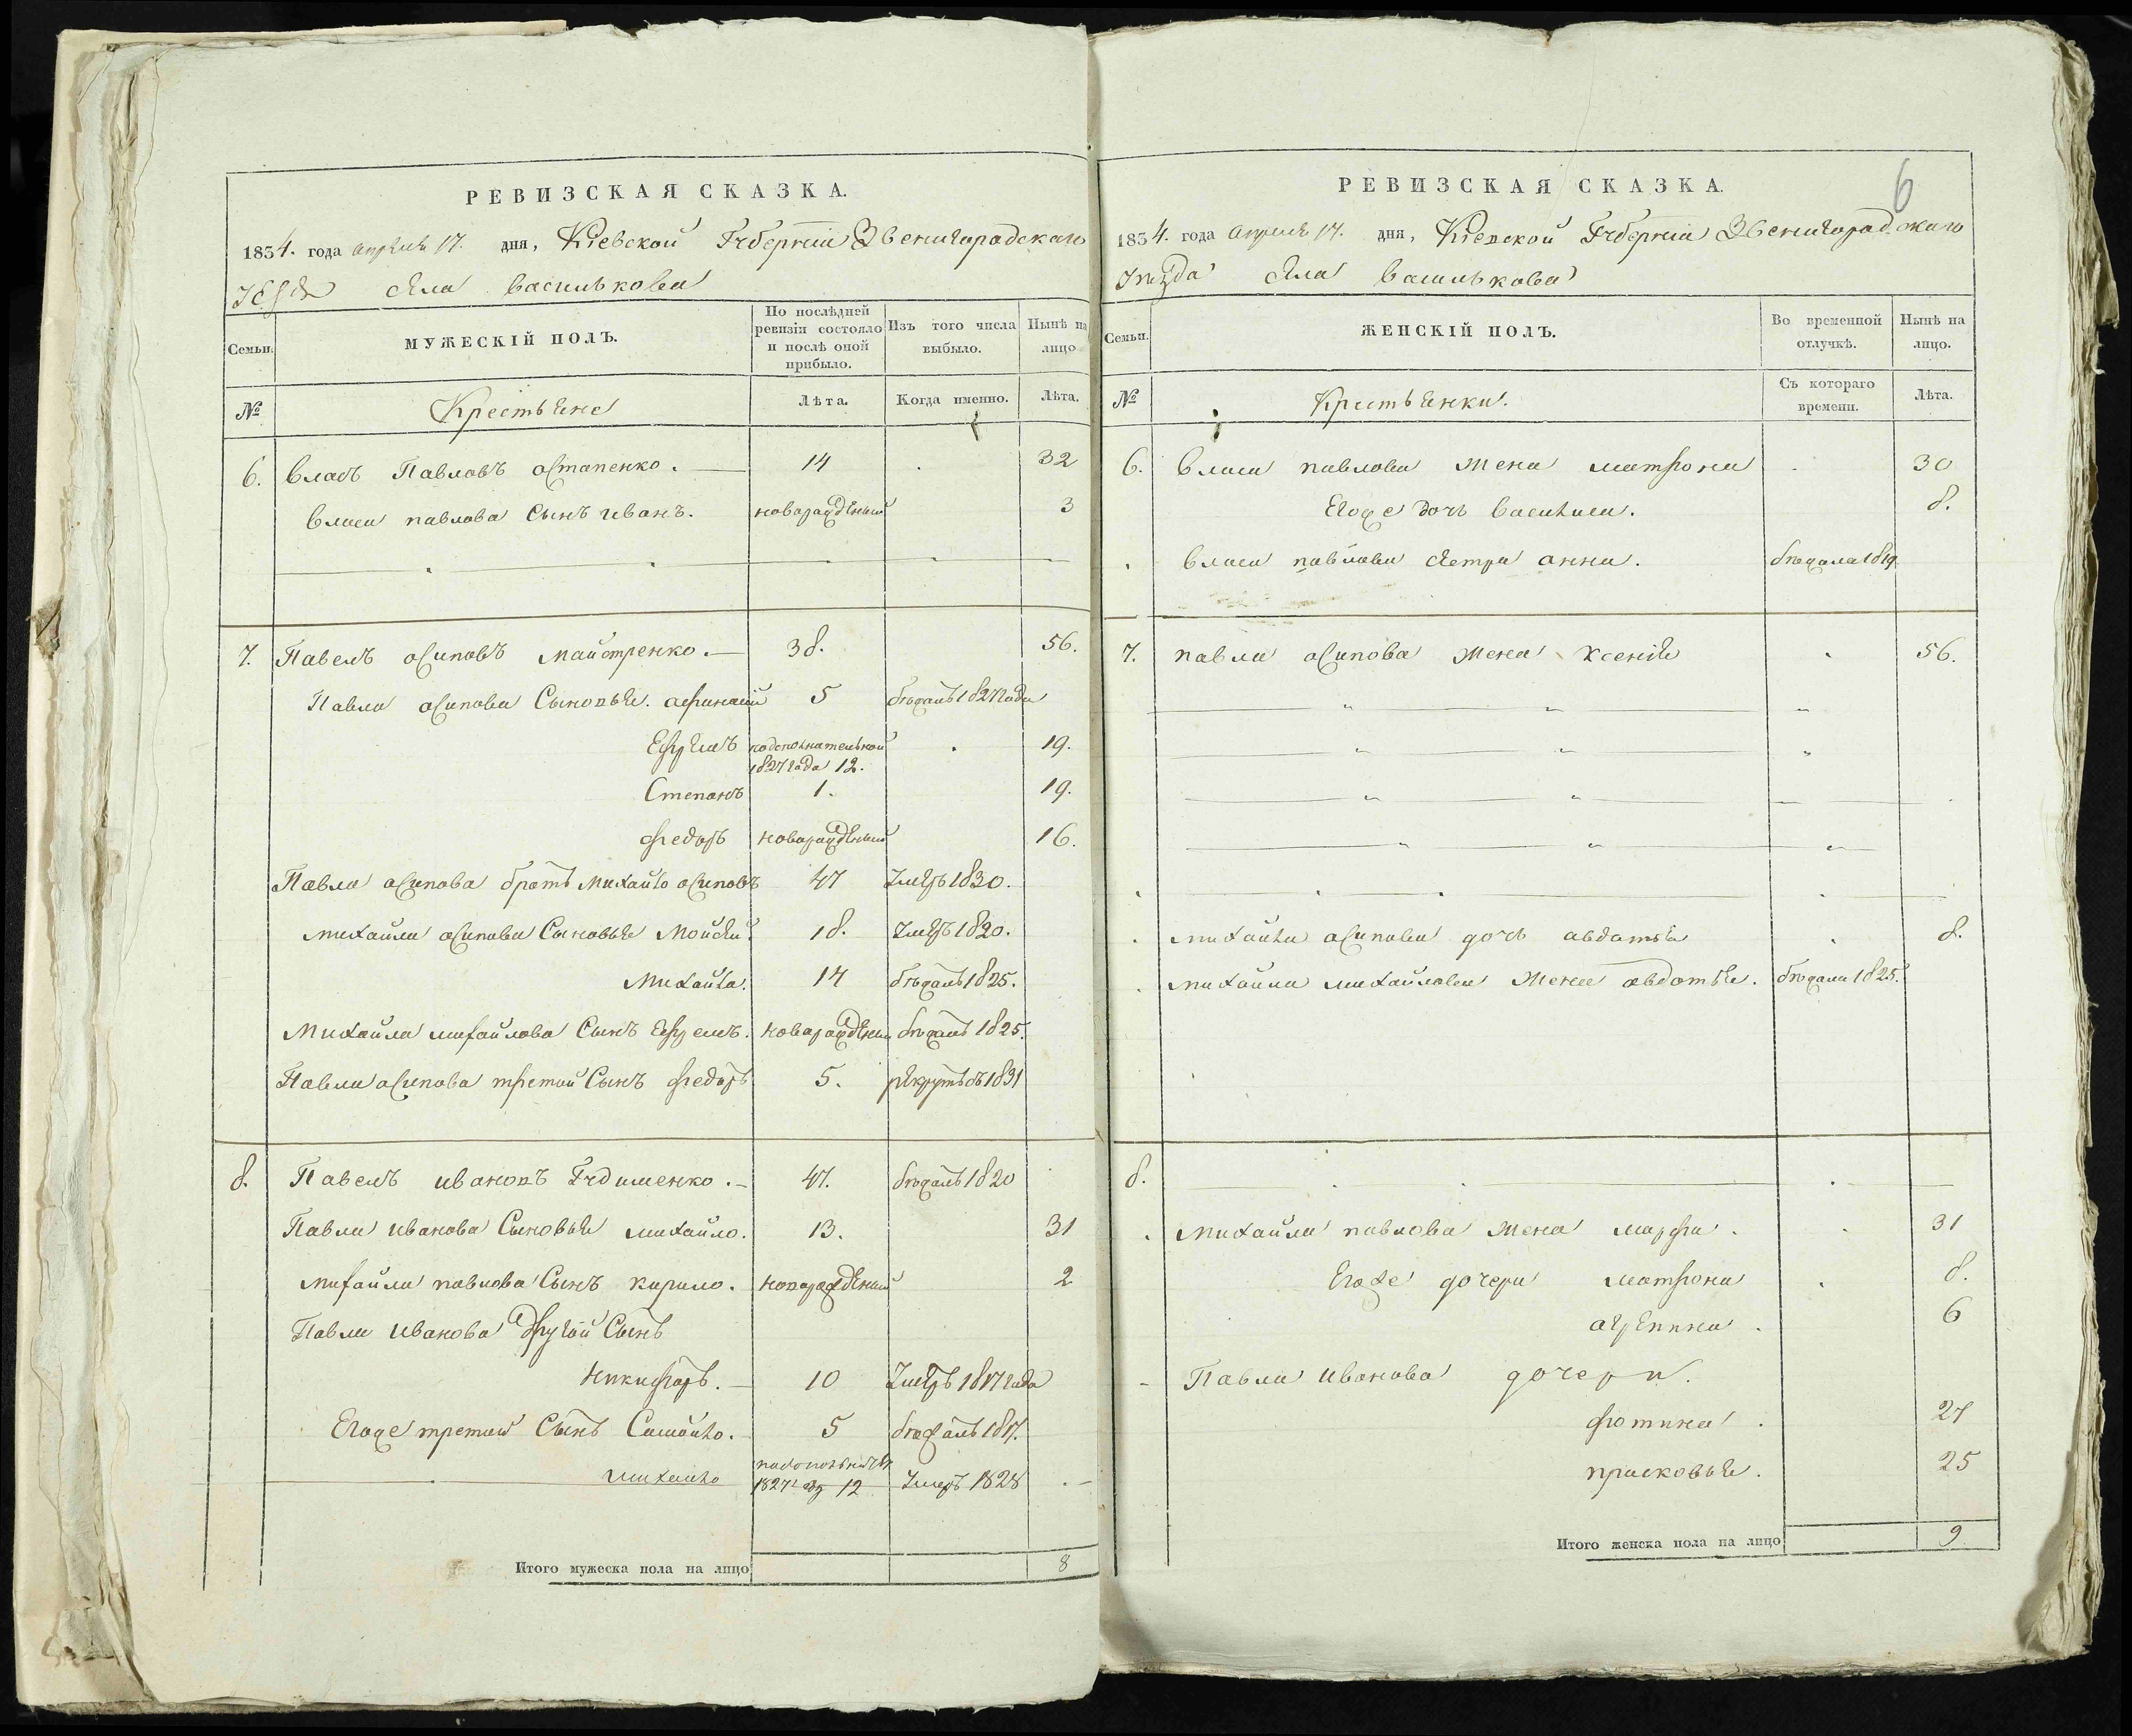 РЕВИЗСКАЯ СКАЗКА.
1834. года апреля 17. дня, Кіевской Губерніи Звенигородскаго
уезда села василькова
Семьи. МУЖЕСКІЙ ПОЛЪ. По послѣдней ревизіи состояло и послѣ оной прибыло. Изъ того числа выбыло. Нынѣ на лицо
№ Крестьяне Лѣта. Когда именно. Лѣта.
6. Власъ Павловъ остапенко. 14 32
Власа павлова Сынъ иванъ. новорожденый 3
7. Павелъ осиповъ майстренко. 38. 56.
Павла осипова Сыновья. афанасий 5 бежалъ 1827 года
Ефремъ по дополнительной 1827 года 12. 19.
Степанъ 1. 19.
федоръ новорожденый 16.
Павла осипова братъ михайло осиповъ 47 Умеръ 1830.
михайла осипова Сыновья Мойсей. 18. Умеръ 1820.
Михайла. 14 бежалъ 1825.
Михайла михайлова Сынъ Ефремъ. новорожденый бежалъ 1825.
Павла осипова третой Сынъ федоръ 5. рекрутъ въ 1831
8. Павелъ ивановъ Гудименко. 47. бежалъ 1820
Павла иванова Сыновья михайло. 13. 31
михайла павлова Сынъ кирило. новорожденый 2
Павла иванова другой Сынъ
никифоръ. 10 Умеръ 1817 года
Егоже третий Сынъ Самойло. 5 бежалъ 1817.
михайло 1827 12 Умеръ 1828
Итого мужеска пола на лицо 8
6
РЕВИЗСКАЯ СКАЗКА.
1834. года апреля 17. дня, Кіевской Губерніи Звенигородскаго
уезда села василькова
Семьи. ЖЕНСКІЙ ПОЛЪ. Во временной отлучкѣ. Нынѣ на лицо.
№ Крестьянки. Съ котораго времени. Лѣта.
6. Власа павлова жена матрона 30
Егоже дочь василиса. 8.
Власа павлова сестра анна. бежала 1819
7. павла осипова жена ксенія 56.
михайла осипова дочь авдотья 8.
михайла михайлова жена авдотья. бежала 1825.
8.
Михайла павлова жена марфа. 31
Егоже дочери матрона 8.
агрепина. 6
Павла иванова дочери.
фотина. 27
прасковья. 25
Итого женска пола на лицо 9